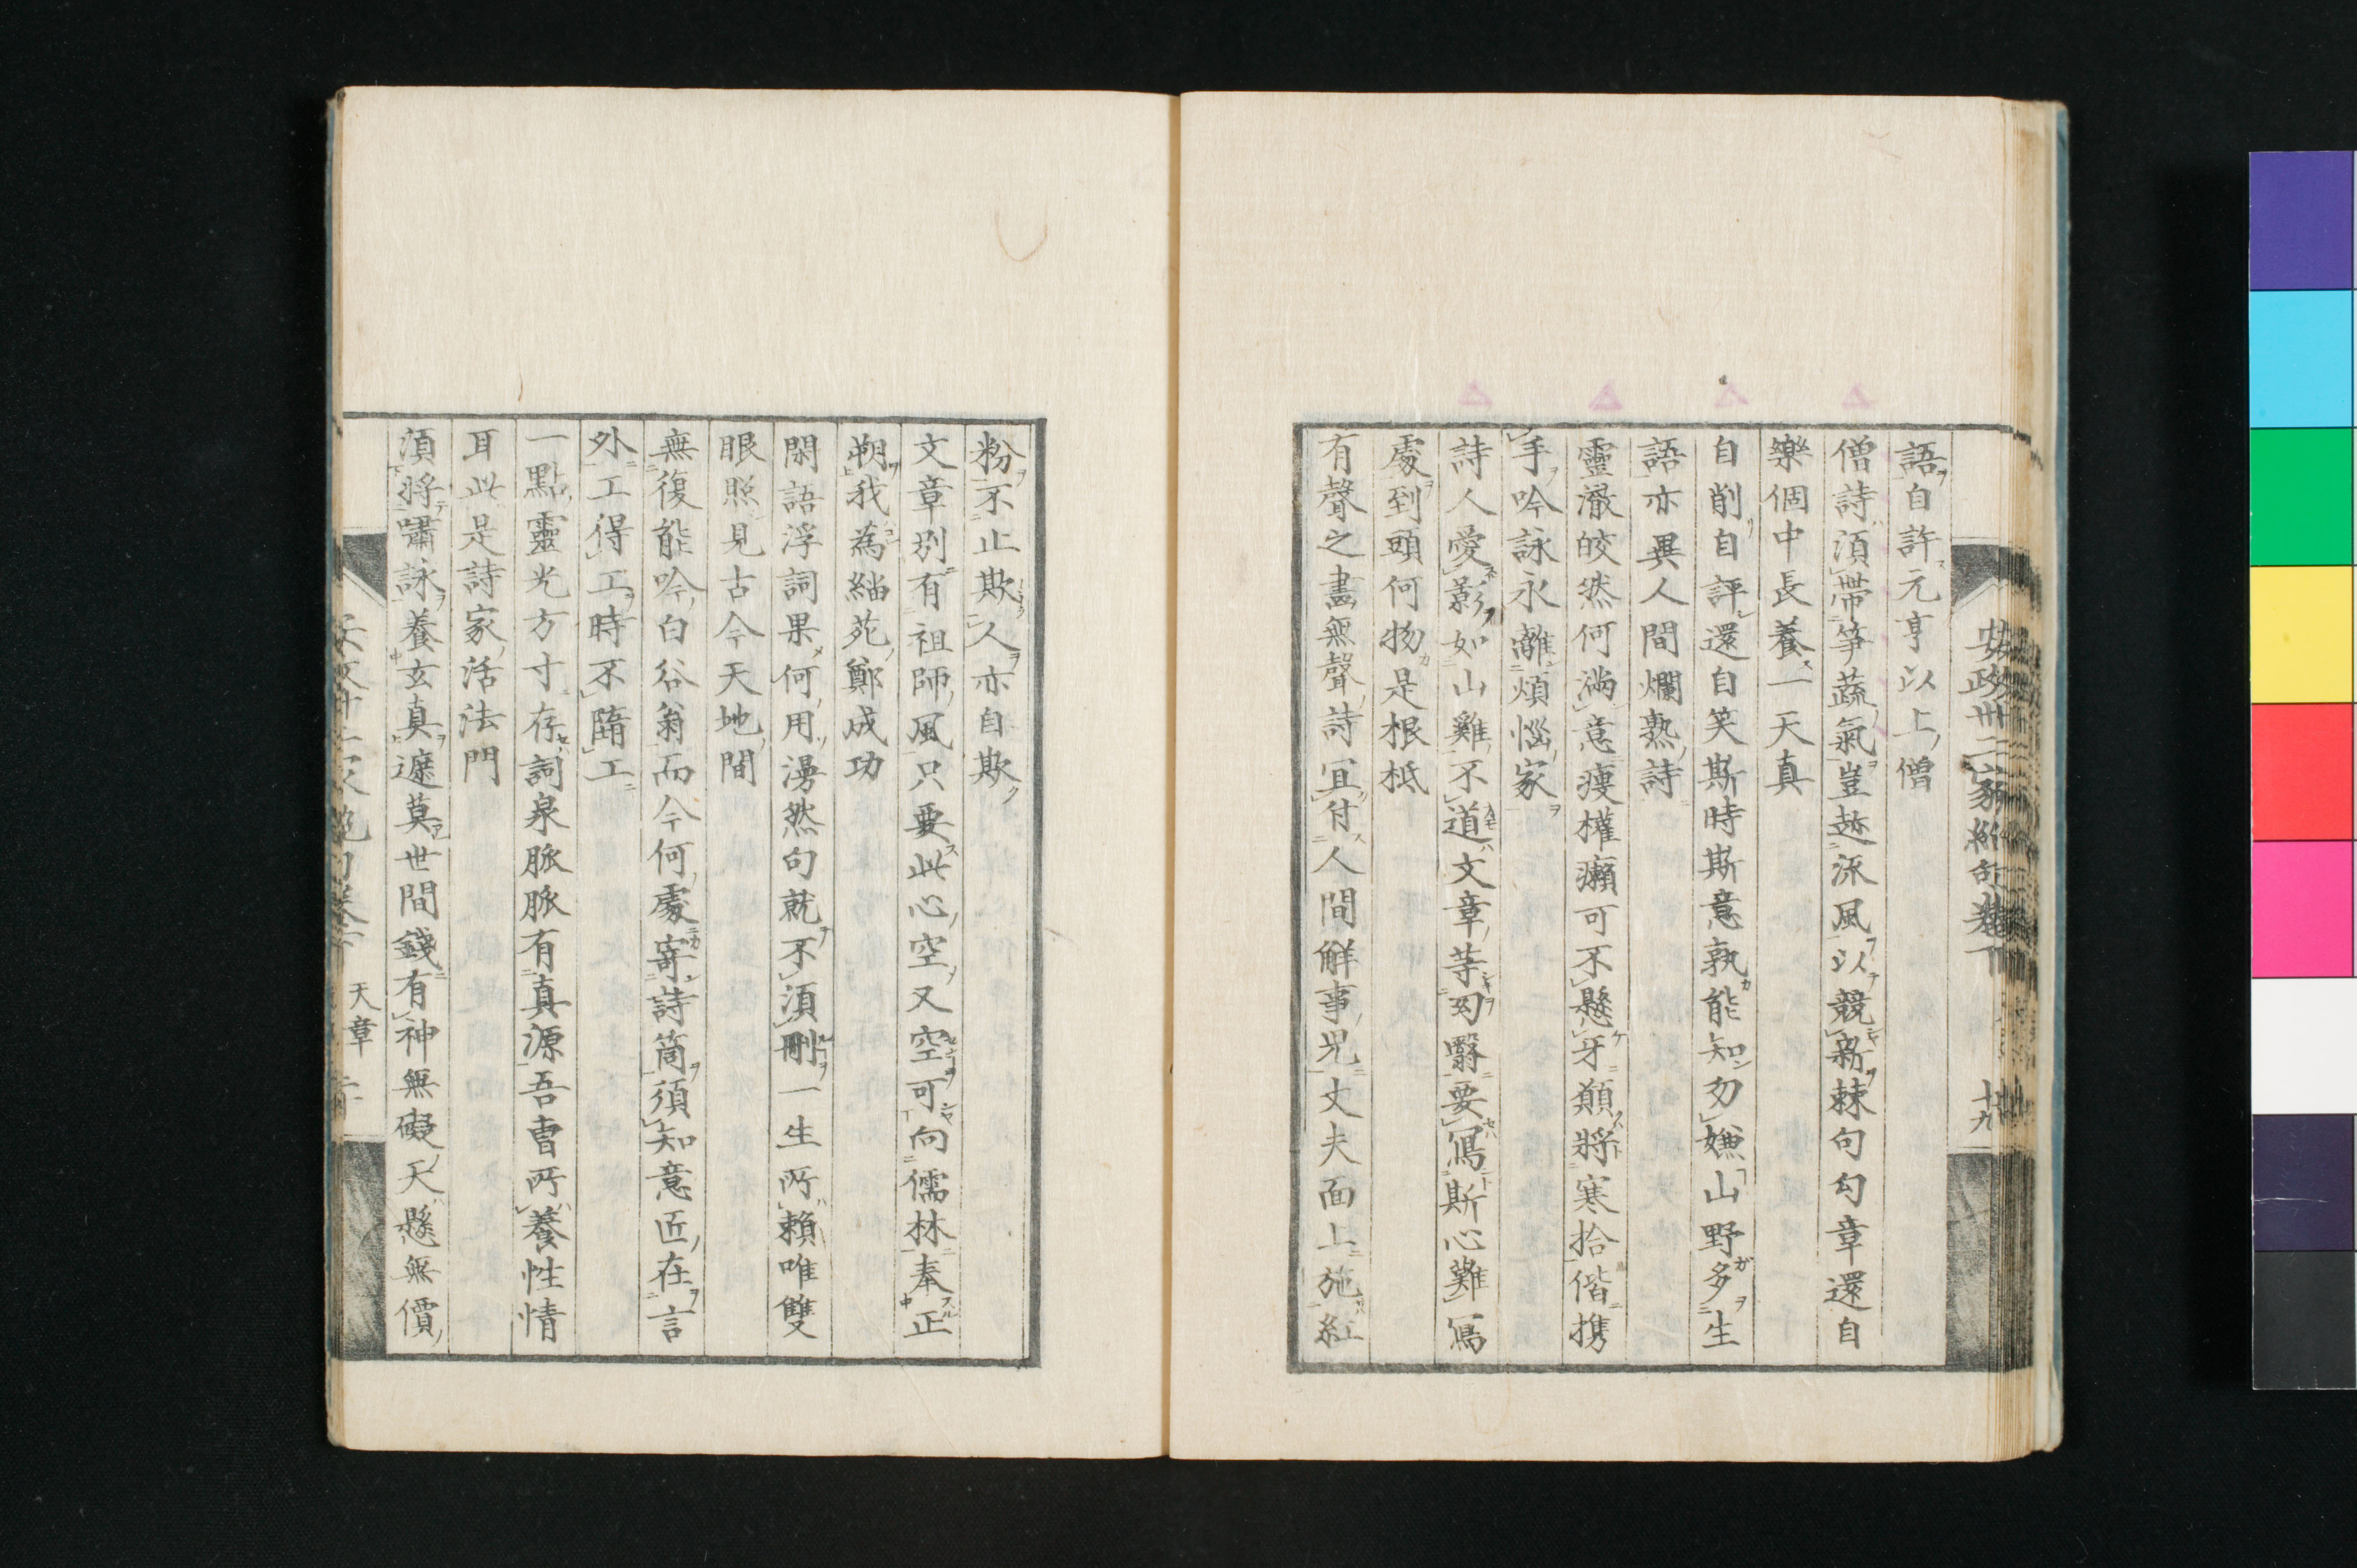 安政卅二家絶句卷下 十九
語自許元亨以上僧
僧詩須帶笋蔬氣豈趂流風以競新棘句勾章還自
樂個中長養一天真
自削自評還自笑斯時斯意孰能知勿嫌山野多生
語亦異人間爛熟詩
靈澈皎然何滿意瘦權癩可不懸牙頻將寒拾偕携
手吟詠永離煩惱家
詩人愛影如山雞不道文章等匂翳要寫斯心難寫
處到頭何物是根柢
有聲之畫無聲詩宜付人間解事兒丈夫面上施紅
粉不止欺人亦自欺
文章別有祖師風只要此心空又空可向儒林奉正
朔我為緇苑鄭成功
閑語浮詞果何用漫然句就不須刪一生所賴唯雙
眼照見古今天地間
無復能吟白谷翁而今何處寄詩筒須知意匠在言
外工得工時不墮工
一點靈光方寸存詞泉脈脈有真源吾曹所養性情
耳此是詩家活法門
須將嘯詠養玄真遮莫世間錢有神無礙天懸無價
天章